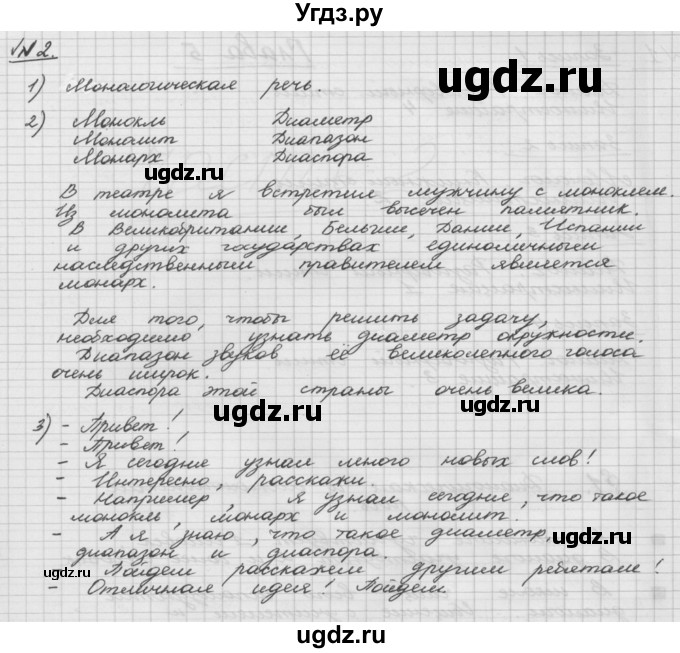 Угдз.ру
№2.
1) Монологическая речь.
2) Монокль Диаметр
Монолит Диапазон
Монарх Диаспора
В театре я встретил мужчину с моноклем.
Из монолита был высечен памятник.
В Великобритании, Бельгии, Дании, Испании
и других государствах единоличным
наследственным правителем является
монарх.
Для того, чтобы решить задачу,
необходимо узнать диаметр окружности.
Диапазон звуков её великолепного голоса
очень широк.
Диаспора этой страны очень велика.
3) - Привет!
- Привет!
- Я сегодня узнал много новых слов!
- Интересно, расскажи.
- Например, я узнал сегодня, что такое
монокль, монарх и монолит.
- А я знаю, что такое диаметр,
диапазон и диаспора.
- Пойдем расскажем другим ребятам!
- Отличная идея! Пойдем.
ugdz.ru
ugdz.ru
ugdz.ru
ugdz.ru
ugdz.ru
ugdz.ru
ugdz.ru
ugdz.ru
ugdz.ru
ugdz.ru
ugdz.ru
ugdz.ru